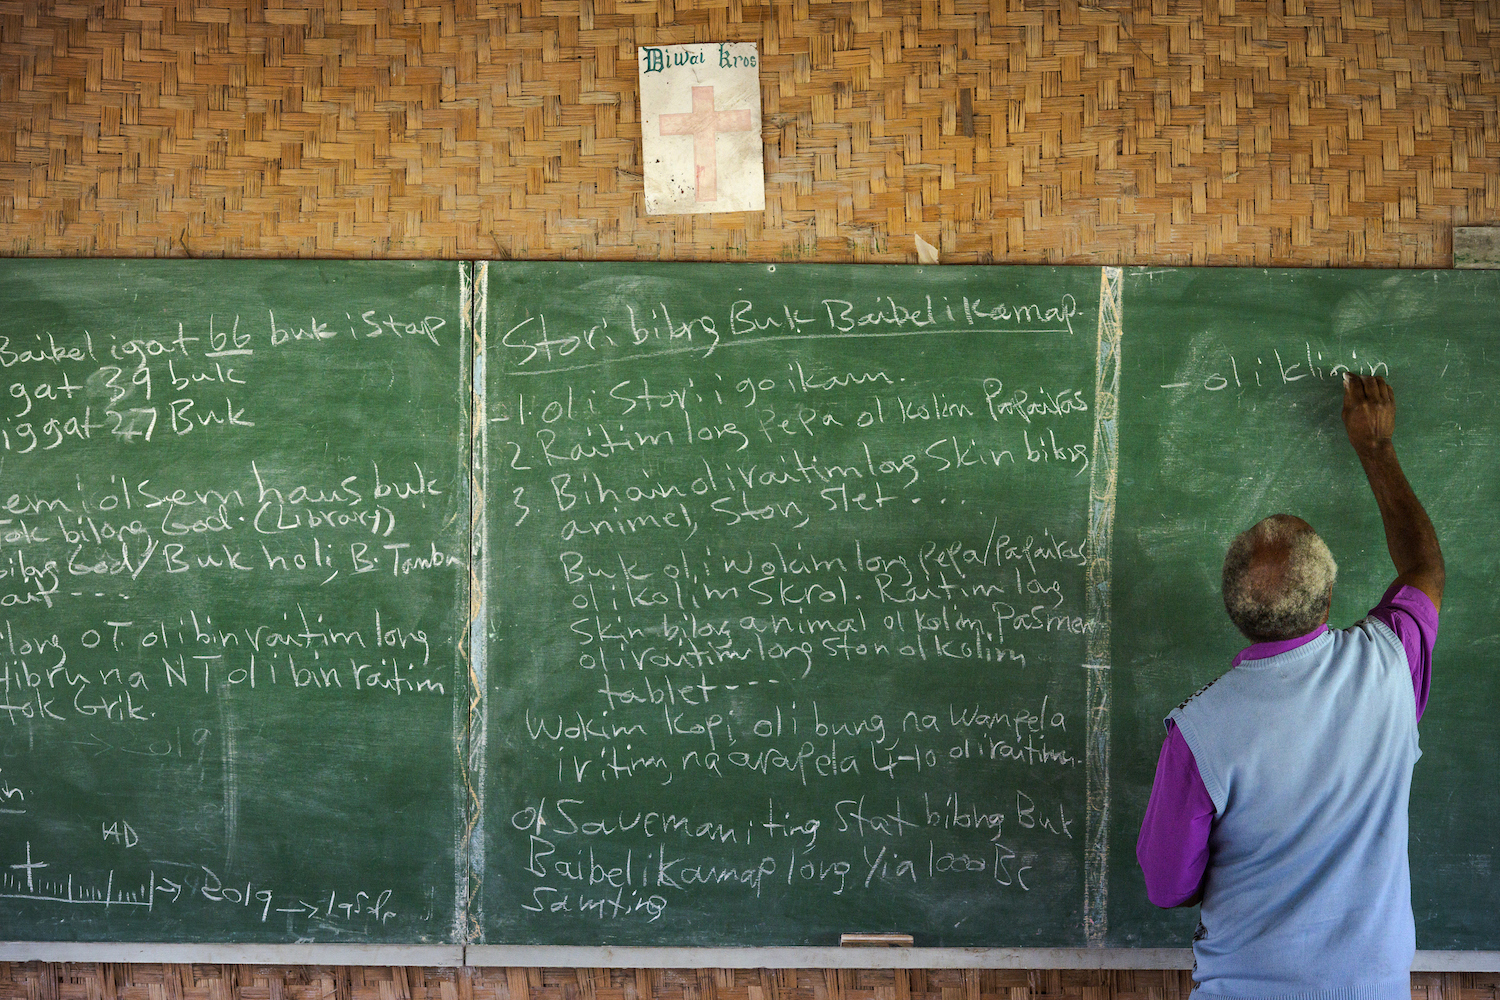 Diwai Kros
Baibel igat 66 buk i stap
gat 39 buk
iggat 27 Buk
em i olsem haus buk
Tok bilong God. (Library)
bilng God/Buk holi, B. Tambu
ilong OT oli bin raitim long
Hibru na NT oli bin raitim
tok Grik.
AD
→ 2019 →
Stori bilong Buk Baibel i kamap.
-1. ol i Stori i go i kam.
2 Raitim long pepa ol kolim Papairas
3. Bihain oli raitim long Skin bilong
animel, Ston, Slet ....
Buk oli wokim long pepa/Papairas
oli kolim Skrol. Raitim long
Skin bilong animal ol kolim Pasmen
oli raitim long Ston ol kolim
tablet ---
Wokim kopi oli bung na wanpela
i ritim, na arapela 4-10 oli raitim.
ol Saveman i ting Stat bilong Buk
Baibel i kamap long Yia 1000 BC
Samting
- ol i klinin